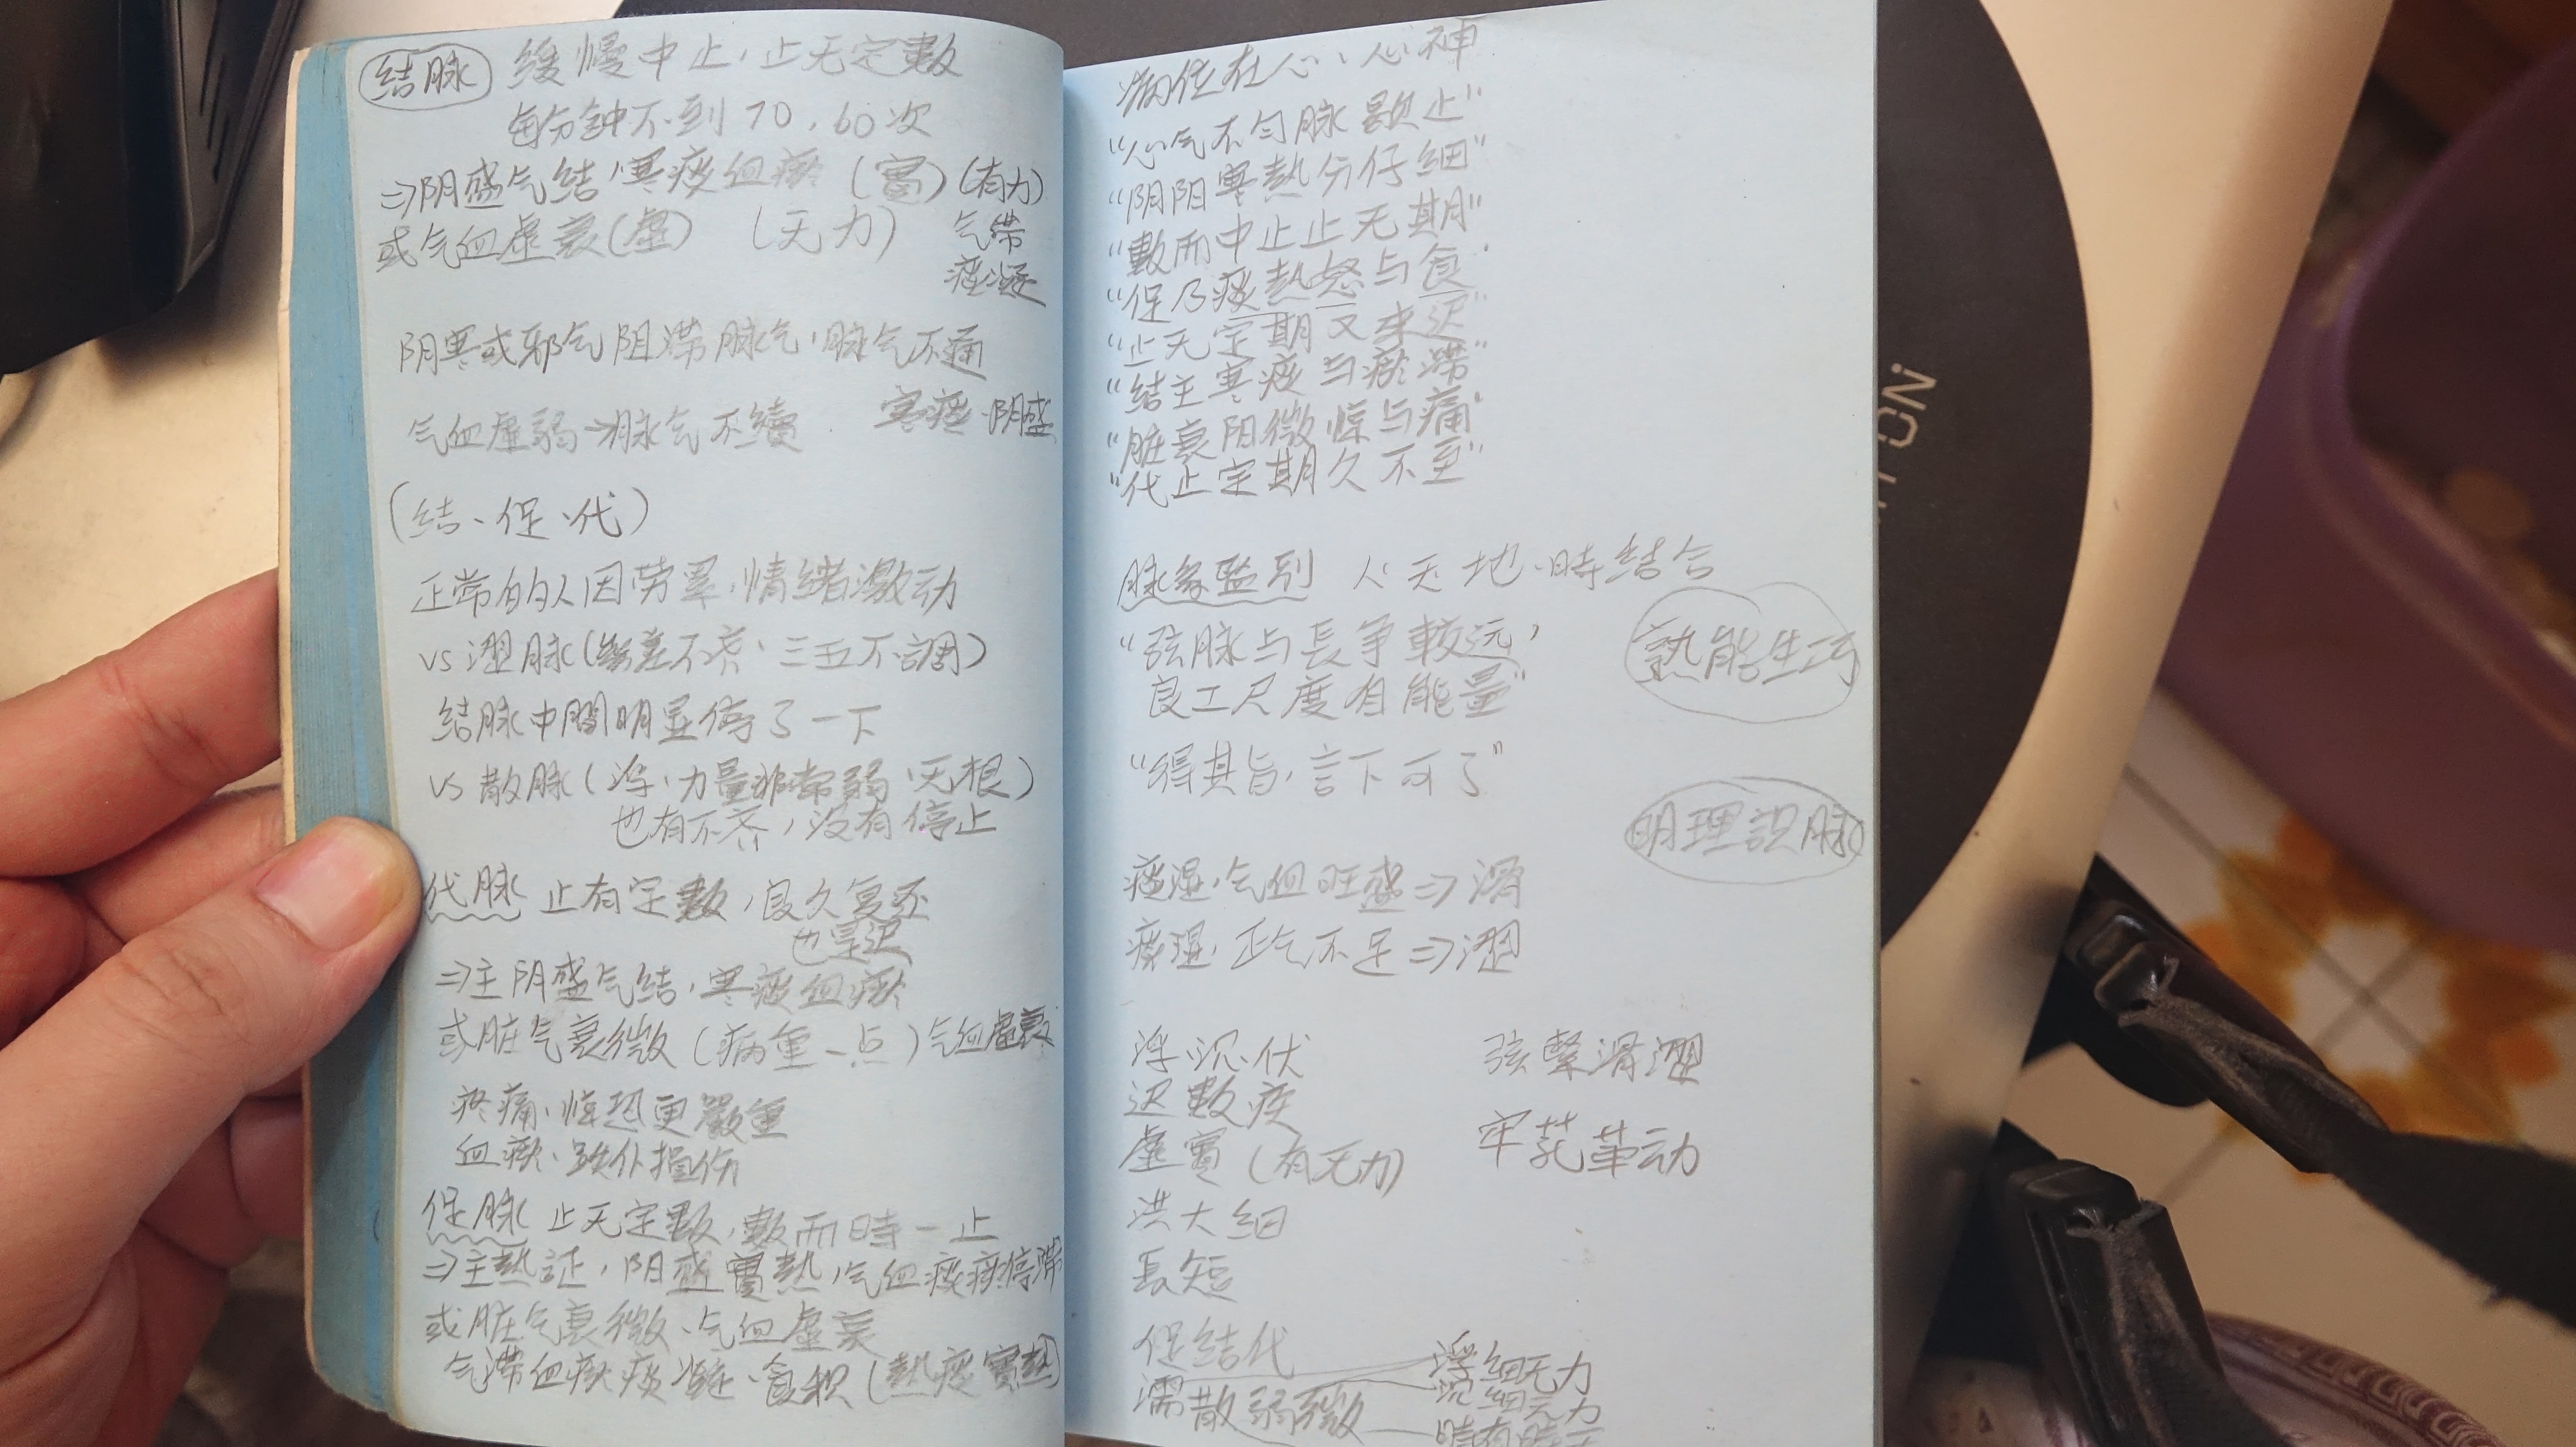 结脉 缓慢中止，止无定數
每分鈡不到70、60次
⇒阴盛气结，寒痰血瘀（實）（有力）
或气血虚衰（虛）（无力） 气滞
痰凝
阴寒或邪气阻滞脉气，脉气不通
气血虚弱→脉气不續 寒痰、阴盛
（结、促、代）
正常的人因劳累，情緒激动
vs 澀脉（叁差不齐、三五不調）
结脉中間明显停了一下
vs 散脉（浮、力量非常弱、无根）
也有不齐，没有停止
代脉 止有定數，良久复还
也是迟
⇒主阴盛气结，寒痰血瘀
或脏气衰微（病重一点）气血虚衰
疼痛、惊恐更嚴重
血瘀、跌仆損伤
促脉 止无定數，數而時一止
⇒主熱証，阴盛實熱，气血痰瘀停滞
或脏气衰微、气血虛衰
气滞血瘀痰凝、食积（熱痰實熱）
病位在心、心神
“心气不匀脉歇止”
“阴阳寒熱分仔細”
“數而中止止无期”
“促乃痰熱怒与食”
“止无定期又来迟”
“结主寒痰与瘀滞”
“脏衰阳微惊与痛”
“代止定期久不至”
脉象鉴别 人、天、地、時结合
“弦脉与長争較远，
良工尺度自能量”
熟能生巧
“得其旨，言下可了”
明理識脉
痰湿，气血旺盛⇒滑
痰湿，正气不足⇒澀
浮沉伏 弦緊滑澀
迟數疾
虛實（有无力） 牢芤革动
洪大細
長短
促结代
濡散弱微 浮細无力
沉細无力
時有時无